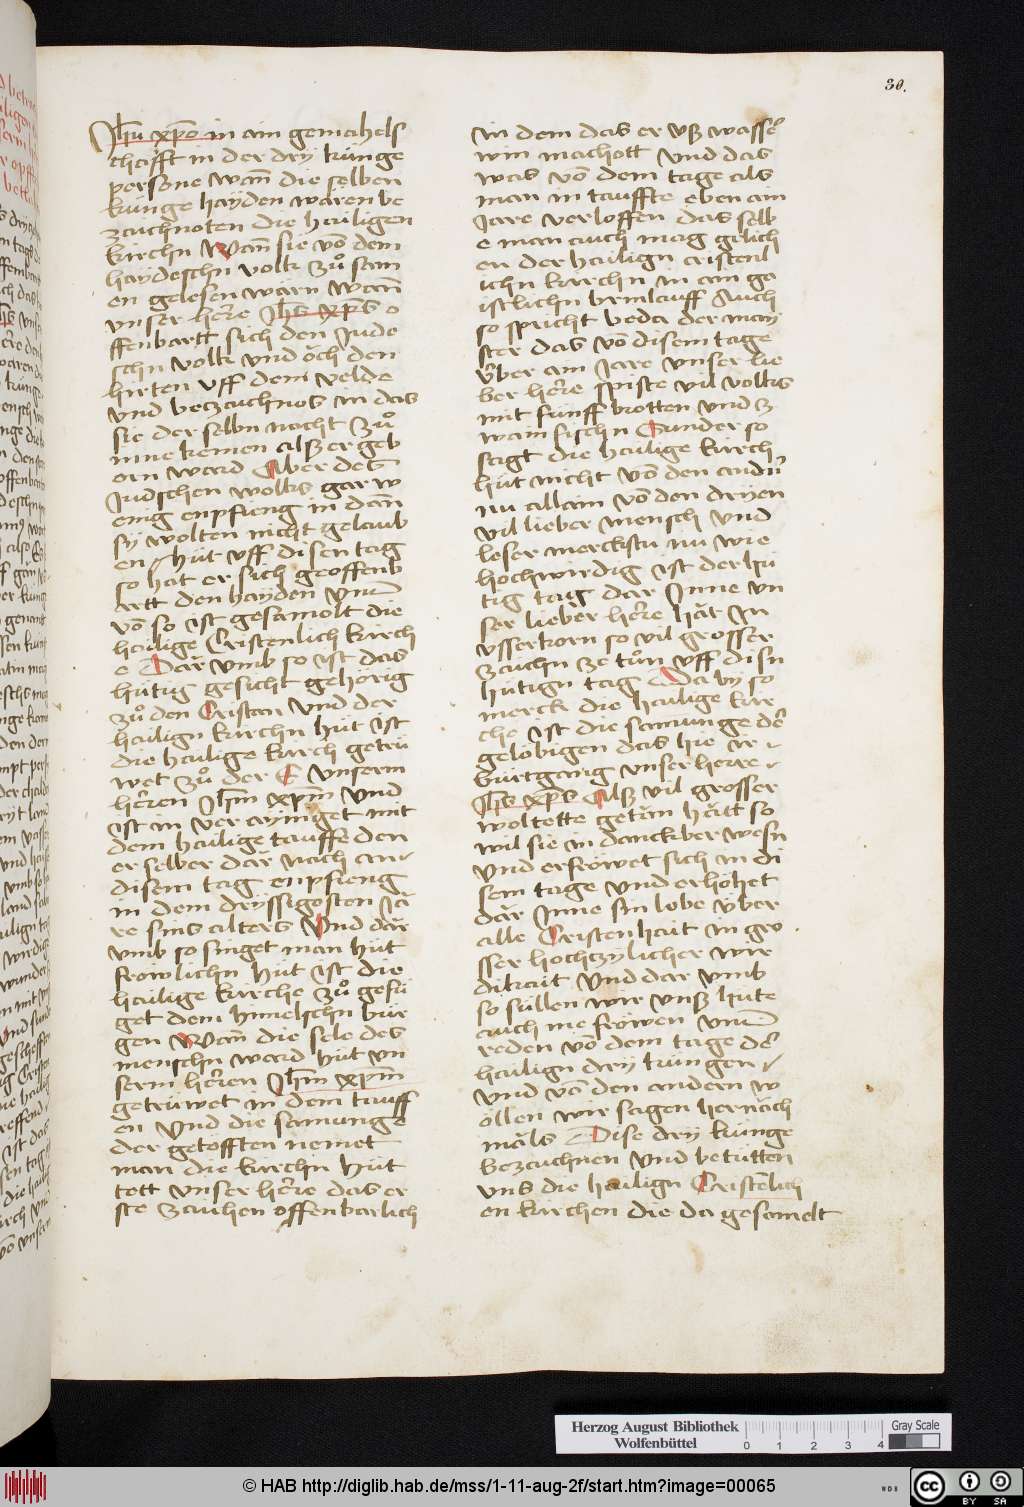 30.
Jhū xp̄o in ain gemahels
chafft in der dry künge
persone wañ die selben
künge hayden waren be
zaichnoten die hailigen
kirchn Wañ sie vō dem
haydeschn volk zů sam
en gelesen warn wañ
vnser herre Jh̄s xp̄s o
ffenbartt sich den Jude
schn volk vnd och den
hirten vff dem velde
vnd bezaichnos in das
sie der selbn nacht zů
ime kemen alsz er geb
orn ward Aber des
Judschen wolks gar w
enig enpfieng in dañ
sy wolten nicht gelaub
en / Hüt vff disen tag
so hat er sich geoffenb
artt den hayden Vnd
vō so ist gesamolt die
hailige Cristenlich kirch
e Dar vmb so ist das
hütig gesicht gehörig
zů den Cristan vnd der
hailign kirchn hüt ist
die hailige kirch getrü
wet zů der E vnserm
herren Jh̄m xp̄m vnd
ist in ver ayniget mit
dem hailige tauffe den
er selber dar nach an
disem tag enpfieng
in dem dryssigosten Ja
re sins alters Vnd dar
vmb so singet man hüt
fröwlichn hüt ist die
hailige kirche zů gefü
get dem himelschn brü
gen Wañ die sele des
menschn ward hüt vn
serm herren Jh̄m xp̄m
getrüwet in dem tauff
en Vnd die samunge
der getöfften nemet
man die kirchn Hüt
tett vnser herre das er
ste zaichen offenbarlich
in dem das er vsz wasser
win machott vnd das
was vō dem tage als
man in tauffte eben ain
Jare verloffen das selb
e man auch mag gelich
en der hailign cristenl
ichn kirchn in ain ga
istlichn brutlauff Auch
so spricht beda der may
ster das vō disem tage
über ain Jare vnser lie
ber herre spiste vil volks
mit fünff brotten vnd z
wain fischn Sunder so
sagt die hailige kirch
hüt nicht vō den andn
nu allain vō den dryen
vil lieber mensch vnd
leser merckstu nu wie
hochwirdig ist der hü
tig tag dar Inne vn
ser lieber herre hār In
vsserkorn so vil grosser
zaichn ze tůn vff disn
hütign tag Da by so
merck die hailige kir
che ist die samunge der
gelöbigen das hie ir
bürtgang vnser herre
Jh̄s xp̄s Alsz vil grosser
woltette getān hātt so
wil sie in danckber wesn
vnd erfröwet sich in di
sem tage vnd erhöhet
dār Inne sin lobe über
alle Cristenhait in gro
sser hochzylicher wir
dikait Vnd dar vmb
so süllen wir vnsz hüte
auch me fröwen vnd
reden vō dem tage der
hailign dry küngen
vnd vō den andern w
öllen wir sagen hernāch
māls Dise dry künge
bezaichnen vnd betütten
vns die hailign Cristēlich
en kirchen die da gesamelt
Herzog August Bibliothek
Wolfenbüttel
0 1 2 3 4
Gray Scale
© HAB http://diglib.hab.de/mss/1-11-aug-2f/start.htm?image=00065
WDB
cc BY SA